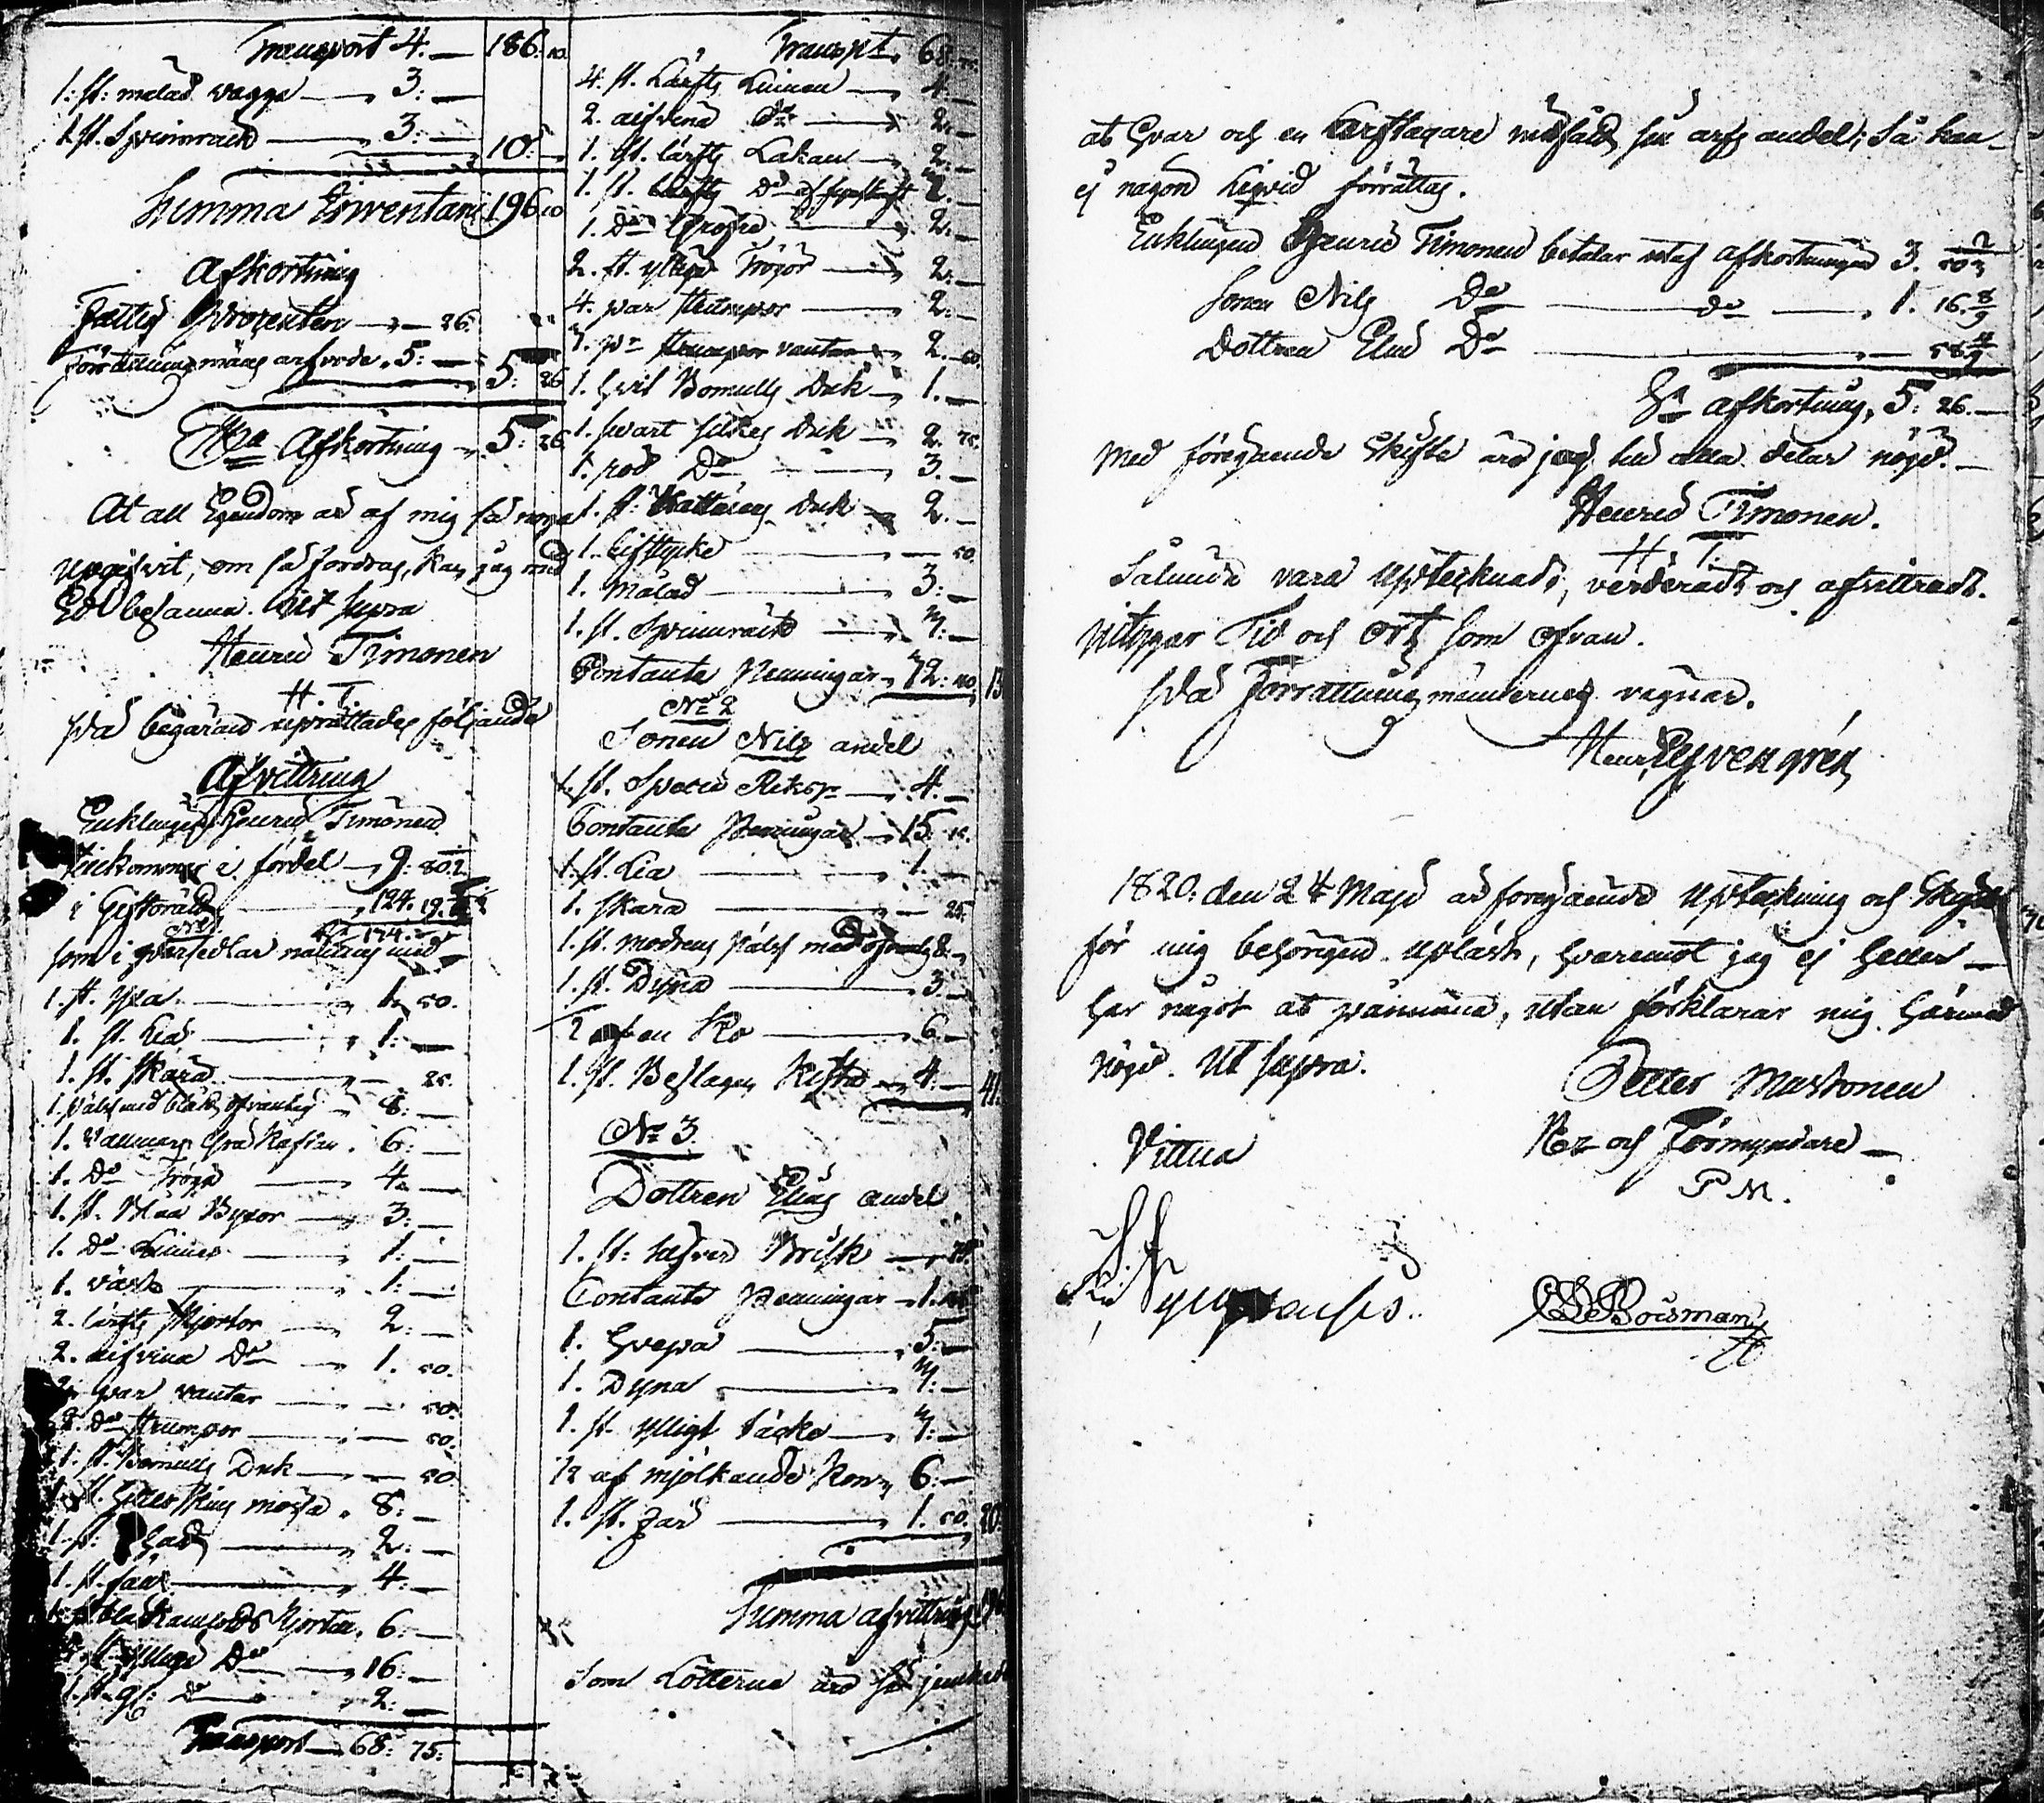 Transport 4. — 186. 10.
1. st. målad vagga — 3. —
1 st. Spinnrock — 3. — 10. —
Summa Inventarii 196. 10
Afkortning
Fattig Procenten — 26.
Förrättningsmäns arfvode. 5. — 5. 26
Sa Afkortning — 5. 26
At all Egendom är af mig så noga
upgifvit, om så fordras, kan jag med
Ed besanna. Ut supra
Henric Timonen
H. T.
På begäran uprättades följande
Afvittring
Enklingen Henric Timonen
tillkommer i fördel — 9. 80.
i Giftorätt — 124. 19.
No 1
som i persedlar nämnes med
1. st. yxa — 1. 50.
1. st. Lia — 1. —
1. st. skära — 25.
1. päls med blått öfvantyg — 8. —
1. Vallmars Grå Kaftan. 6. —
1. Do Tröja — 4. —
1. st. Blåa Byxor — 3. —
1. Do Linne — 1. —
1. väst — 1. —
2. lärfts skjortor — 2. —
2. aifvina Do — 1. 50.
2. par vantar — 50.
2. Do strumpor — 50.
1. st. Bomulls Duk — 50
1. st. skins mössa. 8. —
1. st. — 2. —
1. st. — 4. —
1. st. blå Kamlotts Kjortel. 6. —
st. yllega Do — 16. —
1. st. gl. Do — 2. —
Transport — 68. 75.
Transpt. 68. 75.
4. st. Lärfts Linnen — 4. —
2. aifvina Do — 2. —
1. st. lärfts Lakan — 2. —
1. st. Lärfts Do — 2. —
1. Do Gröfre — 2. —
2. st. yllega Tröjor — 2. —
4. par strumpor — 2. —
pr vantar — 2. 50.
1. hvit Bomulls Duk — 1. —
1. svart silkes Duk — 2. 75.
1. röd Do — 3. —
1. st. Kattuns Duk — 2. —
1. Lifstycke — 50.
1. målad — 3. —
1. st. Spinnrock —
Contante Penningar — 72.
No 2
Sonen Nils andel
1. st. Specie Riksdr — 4. —
Contante Penningar — 15.
1. st. Lia — 1. —
1. skära — 25.
1. st. modrens päls med öfvantyg 8. —
1. st. Dyna — 3. —
1/2 af en Ko — 6. —
1. st. Beslagen Kista — 4. — 41.
No 3.
Dottren Elins andel
1. st. silfver Brisk — 75.
Contante Penningar — 1.
1. Hvepa — 5. —
1. Dyna —
1. st. ylligt täcke —
1/2 af mjölkande Kon, 6. —
1. st. Får — 1. 50. 20.
Summa afvittring
Som Lotterne äro så jemkade
at hvar och en Arftagare undfådt sin arfs andel; så kan
ej någon Liqvid förrättas.
Enklingen Henric Timonen betalar utaf afkortningen 3. 50 2/3
Sonen Nils Do — do — 1. 16. 8/9
Dottren Elin Do — 58. 4/9
Sa afkortning, 5. 26. —
Med föregående Skifte är jag till alla delar nögd. —
Henric Timonen.
H. T.
Sålunda vara upteknadt, värderadt och afvittradt.
vitsgar Tid och Ort som ofvan.
På Förrättningsmännernes vägnar.
Henr.
1820. den 24 Maji är föregående Upteckning och Skifte
för mig behörigen upläst, hvaremot jag ej heller —
har något at påminna, utan förklarar mig härmed
nögd. Ut supra.
Petter Mustonen
Vittna
Ko och Förmyndare —
P. M.